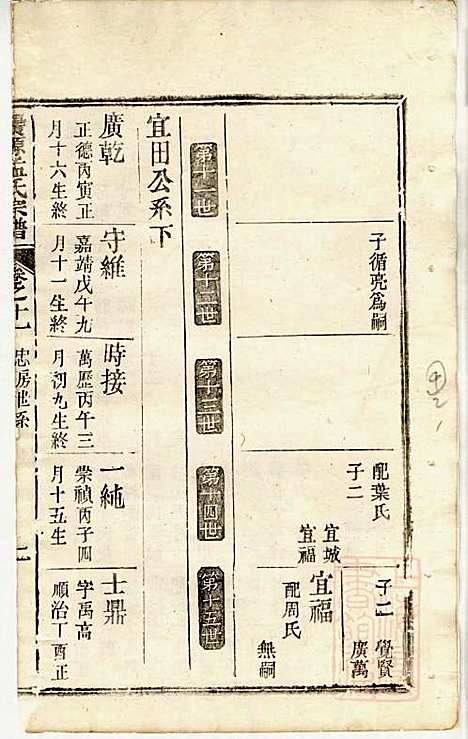 子循亮爲嗣
配葉氏
子二
宜城
宜福
子二
覺賢
廣萬
宜福
配周氏
無嗣
第十一世
第十二世
第十三世
第十四世
第十五世
宜田公系下
廣乾
正德丙寅正
月十六生終
守維
嘉靖戊午九
月十一生終
時接
萬歷丙午三
月初九生終
一純
崇禎丙子四
月十五生
士鼎
字禹高
順治丁酉正
孟氏宗譜
卷之十一
忠房世系
二